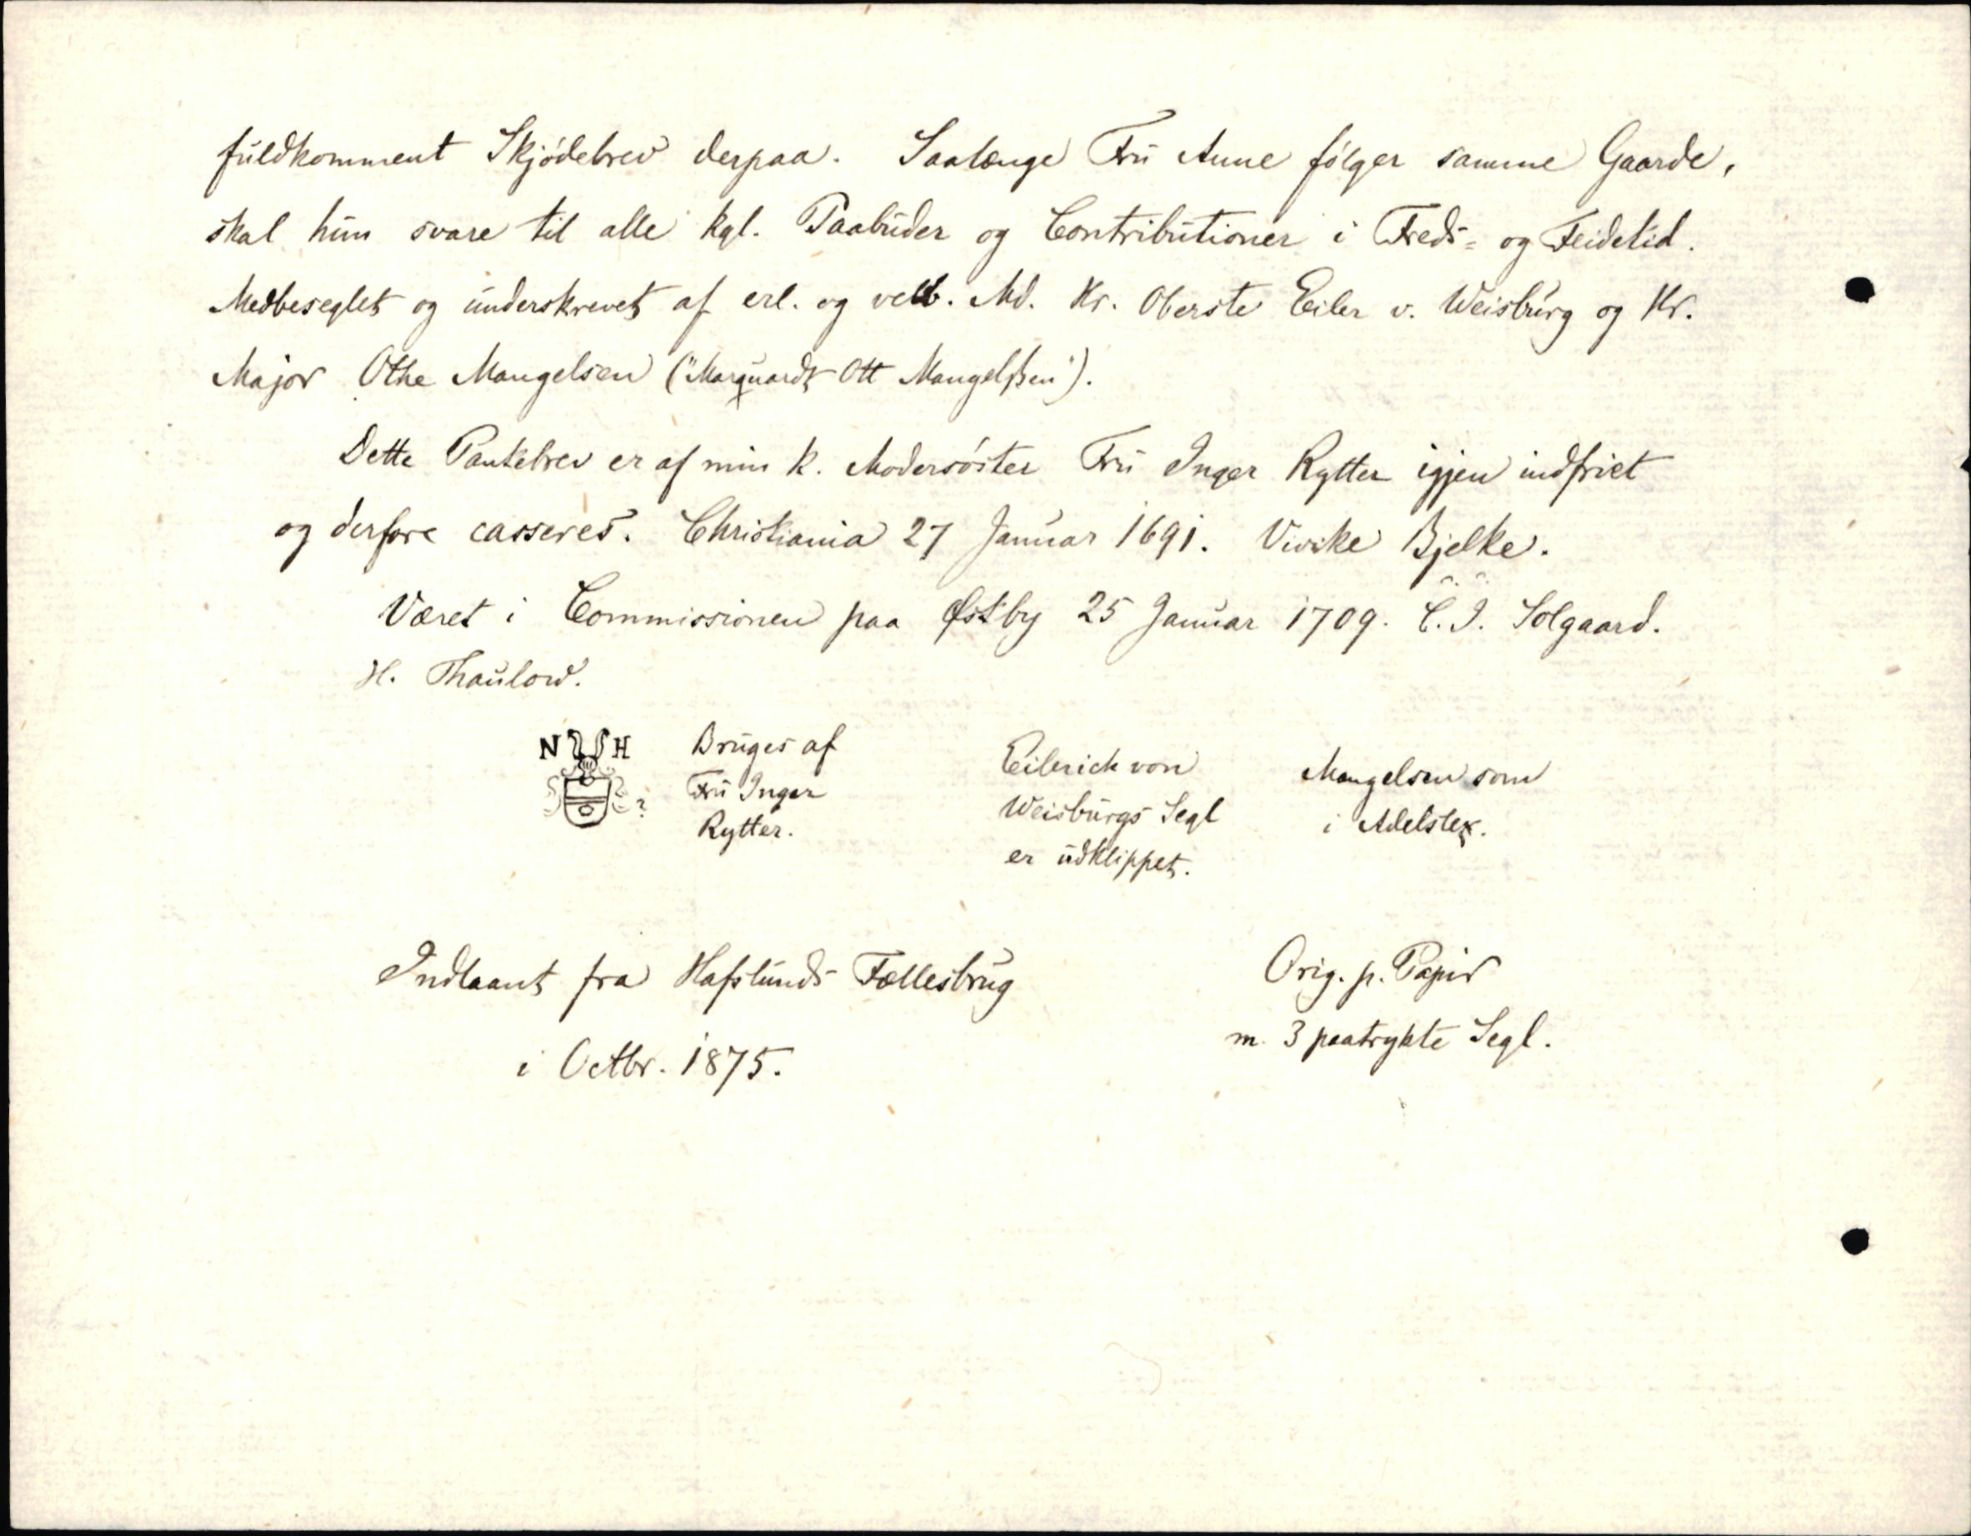 fuldkomment Skjødebrev derpaa. Saalænge Fru Anne følger samme Gaarde,
skal hun svare til alle kgl. Paabuder og Contributioner i Freds- og Feidetid.
Medbeseglet og underskrevet af erl. og velb. Md. Hr. Oberste Eiler v. Weisburg og Hr.
Major Othe Mangelsen ("Marquardt Ott Mangelßen").
Dette Pantebrev er af min k. Modersøster Fru Inger Rytter igjen indfriet
og derfore casseres. Christiania 27 Januar 1691. Vivike Bjelke.
Været i Commissionen paa Østby 25 Januar 1709. C. J. Solgaard.
H. Thaulow.
N H ?
Bruges af
Fru Inger
Rytter.
Eilerich von
Weisburgs Segl
er udklippet.
Mangelsen som
i Adelslex.
Indlaant fra Hafslunds Fællesbrug
i Octbr. 1875.
Orig. p. Papir
m. 3 paatrykte Segl.